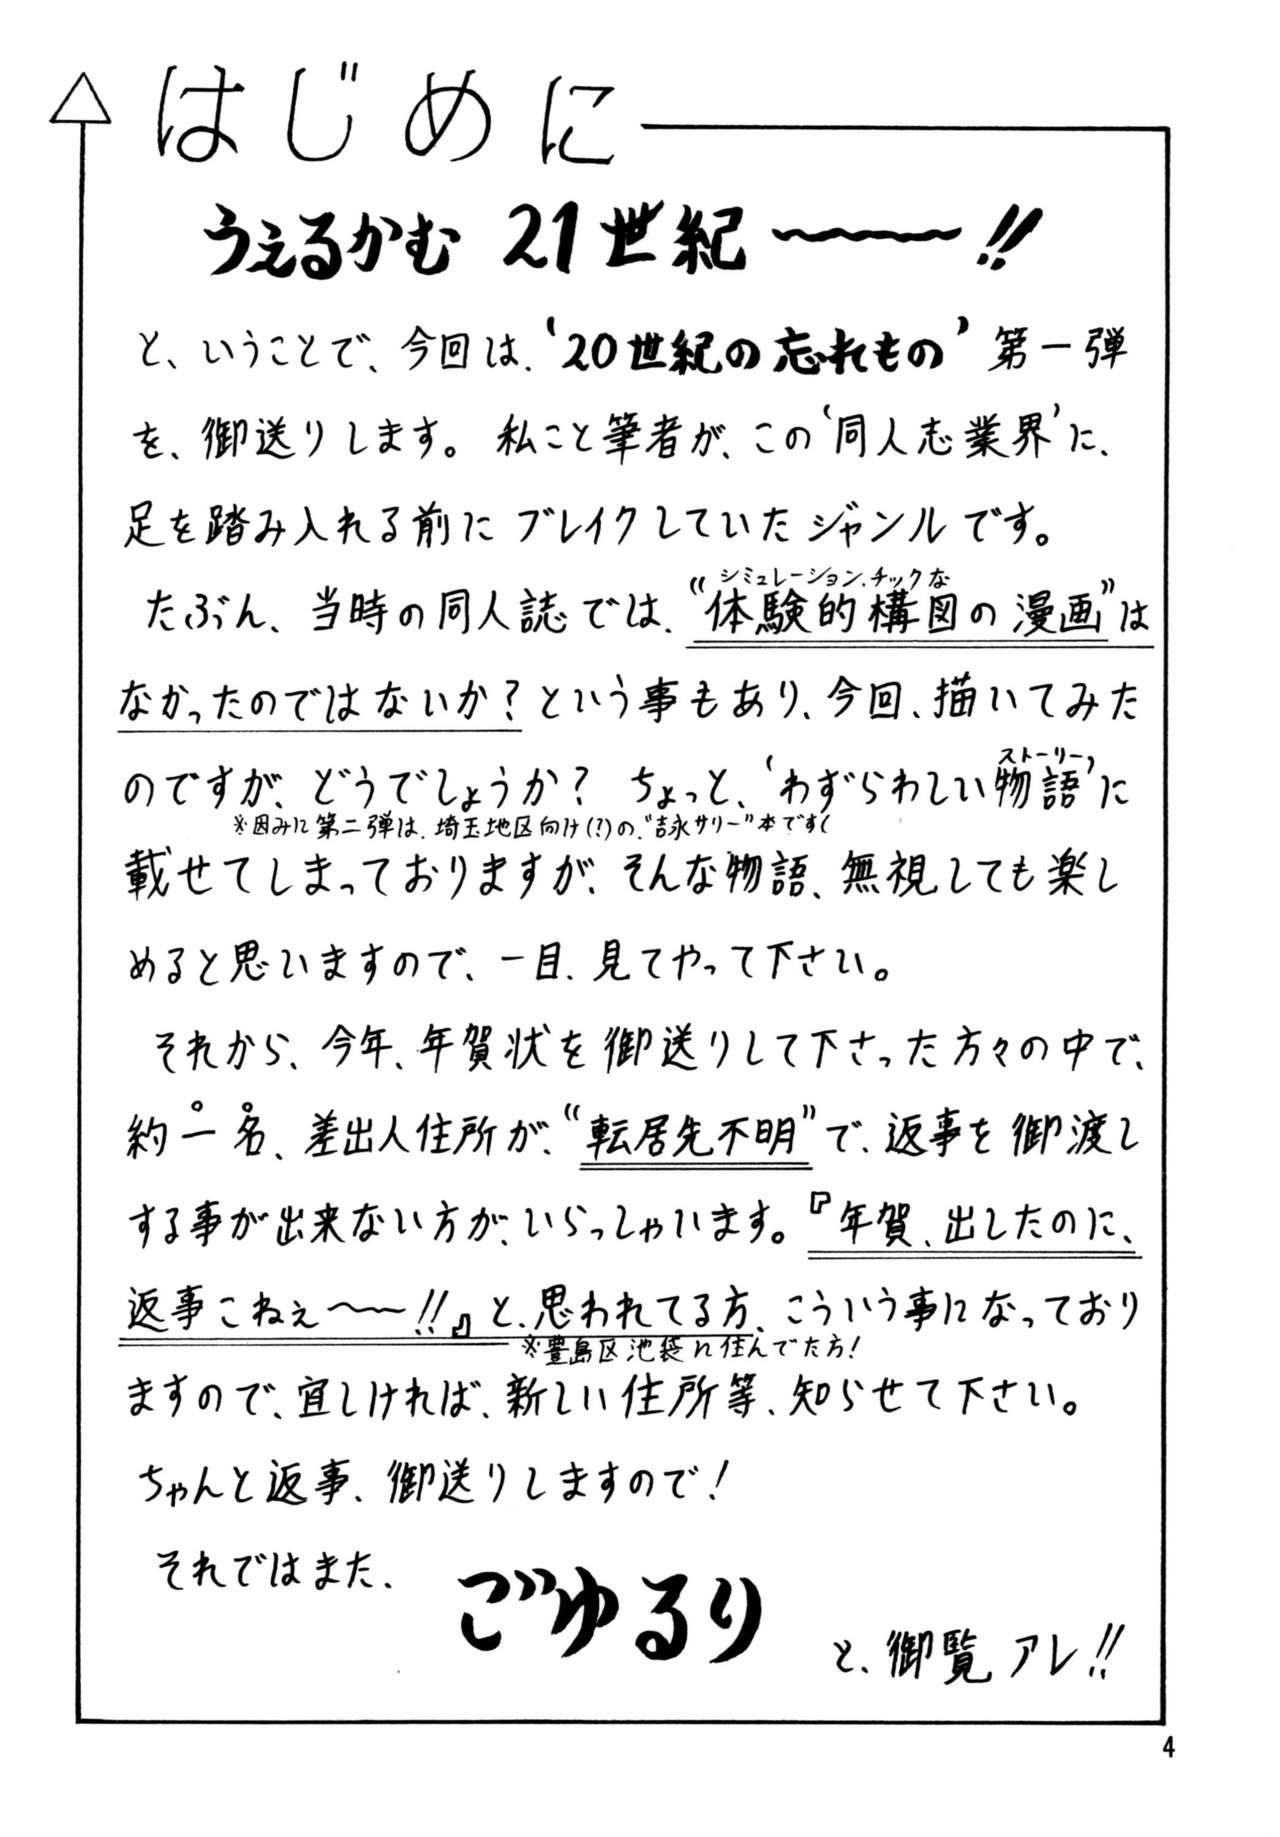 はじめに
うぇるかむ 21世紀〜〜〜!!
と、いうことで、今回は、‘20世紀の忘れもの’第一弾
を、御送りします。私こと筆者が、この‘同人志業界’に、
足を踏み入れる前にブレイクしていたジャンルです。
シミュレーション、チックな
たぶん、当時の同人誌では、“体験的構図の漫画”は
なかったのではないか？という事もあり、今回、描いてみた
ストーリー
のですが、どうでしょうか？ ちょっと、‘わずらわしい物語’に
※因みに第二弾は、埼玉地区向け(?)の、“吉永サリー”本です
載せてしまっておりますが、そんな物語、無視しても楽し
めると思いますので、一目、見てやって下さい。
それから、今年、年賀状を御送りして下さった方々の中で、
約一名、差出人住所が、“転居先不明”で、返事を御渡し
する事が出来ない方が、いらっしゃいます。『年賀、出したのに、
返事こねぇ〜〜!!』と、思われてる方、こういう事になっており
※豊島区池袋に住んでた方!
ますので、宜しければ、新しい住所等、知らせて下さい。
ちゃんと返事、御送りしますので!
それではまた、
ごゆるり
と、御覧アレ!!
4